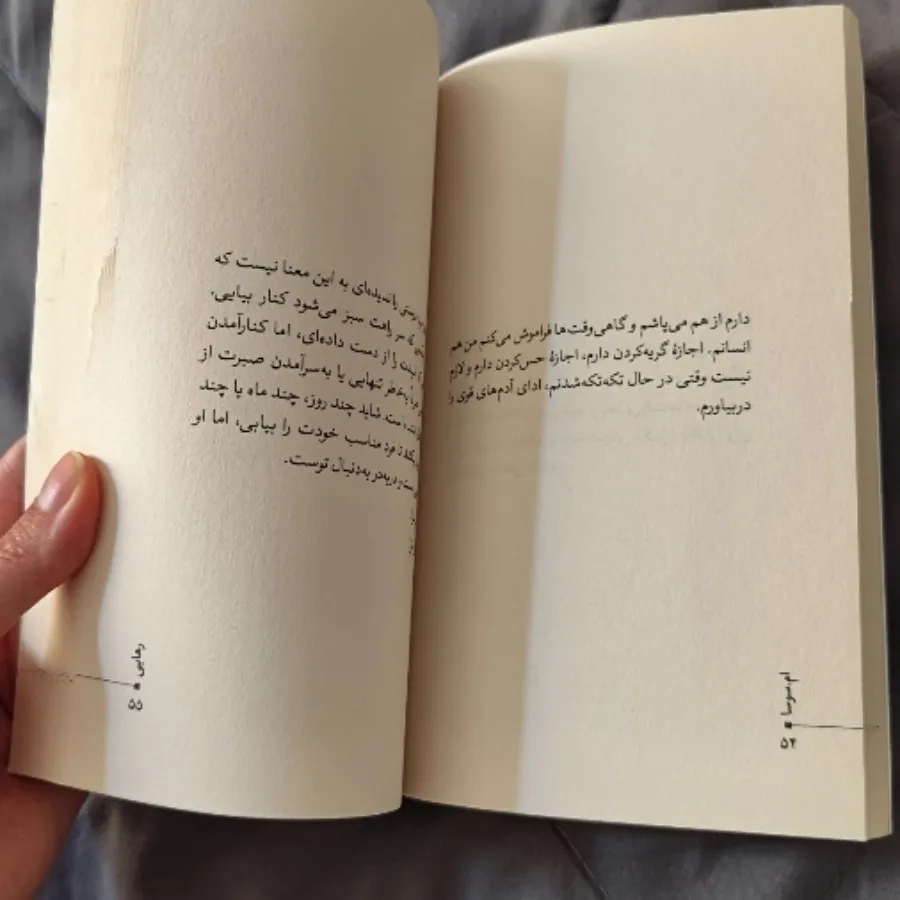 دارم از هم می‌پاشم و گاهی‌وقت‌ها فراموش می‌کنم من هم
انسانم. اجازهٔ گریه‌کردن دارم، اجازهٔ حس‌کردن دارم و لازم
نیست وقتی در حال تکه‌تکه‌شدنم، ادای آدم‌های قوی را
دربیاورم.
ام.سوسا
۵۴
را ندیده‌ای به این معنا نیست که
که سر راهت سبز می‌شود کنار بیایی.
را از دست داده‌ای، اما کنارآمدن
به‌خاطر تنهایی یا به‌سرآمدن صبرت از
است. شاید چند روز، چند ماه یا چند
تا فرد مناسب خودت را بیابی، اما او
و دربه‌در به‌دنبال توست.
رهایی
۵۵